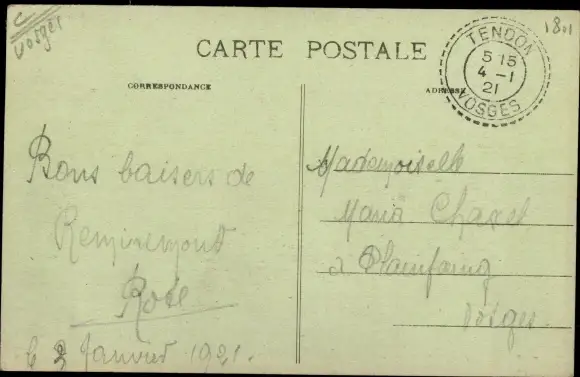 Vosges
1801
CARTE POSTALE
TENDON
5 15
4 -1
21
VOSGES
CORRESPONDANCE
ADRESSE
Bons baisers de
Remiremont
Rose
le 2 Janvier 1921.
Mademoiselle
Maria Chaxel
à Plainfaing
Vosges